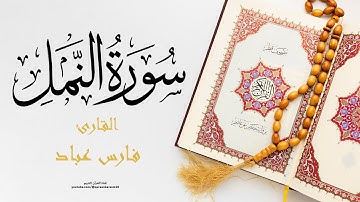 سُورَةُ النَّمْلِ
القارئ
فارس عباد